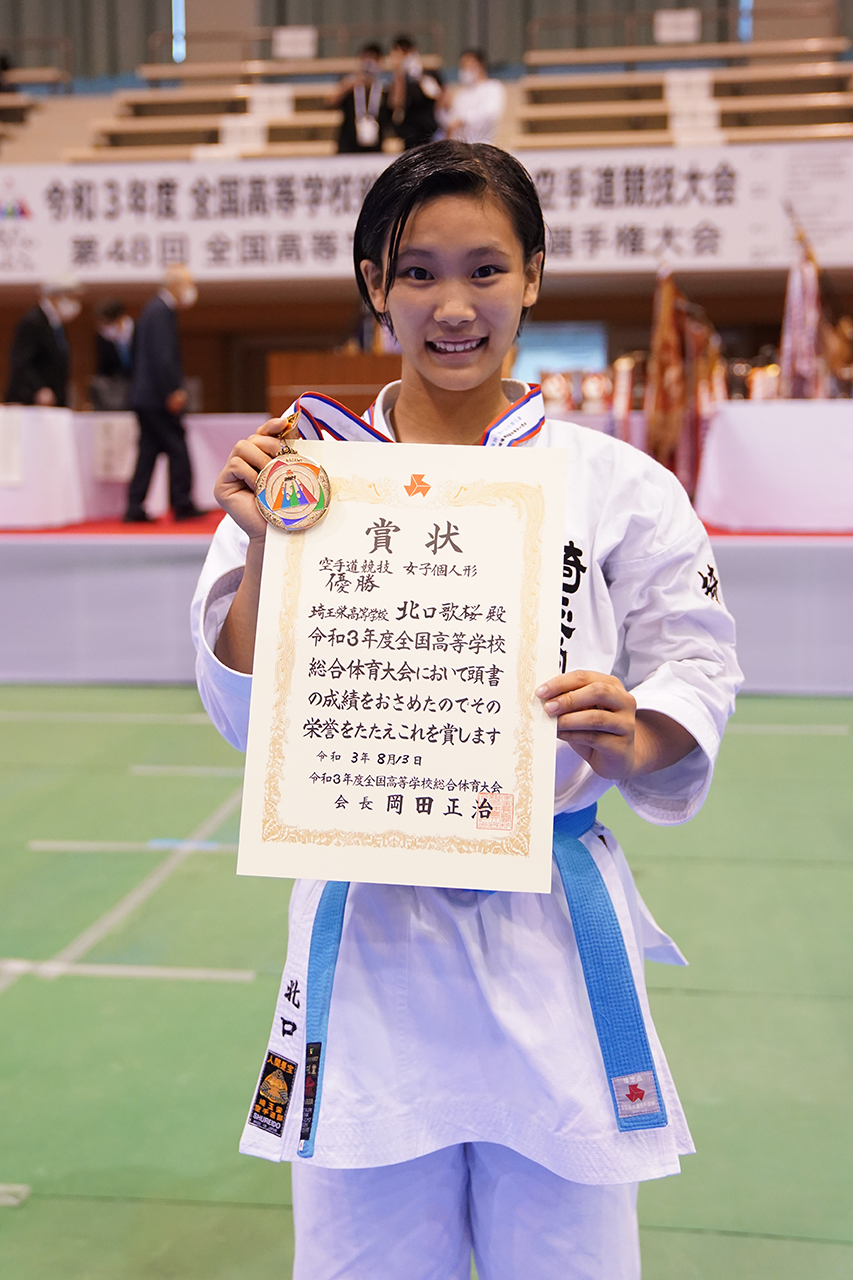 令和3年度 全国高等学校 空手道競技大会
第48回 全国高等 選手権大会
賞状
空手道競技 女子個人形
優勝
埼玉栄高等学校 北口歌桜 殿
令和3年度全国高等学校
総合体育大会において頭書
の成績をおさめたのでその
栄誉をたたえこれを賞します
令和 3年 8月13日
令和3年度全国高等学校総合体育大会
会長 岡田正治
埼
北口
人間国宝
埼玉栄
空手道部
SHUREIDO